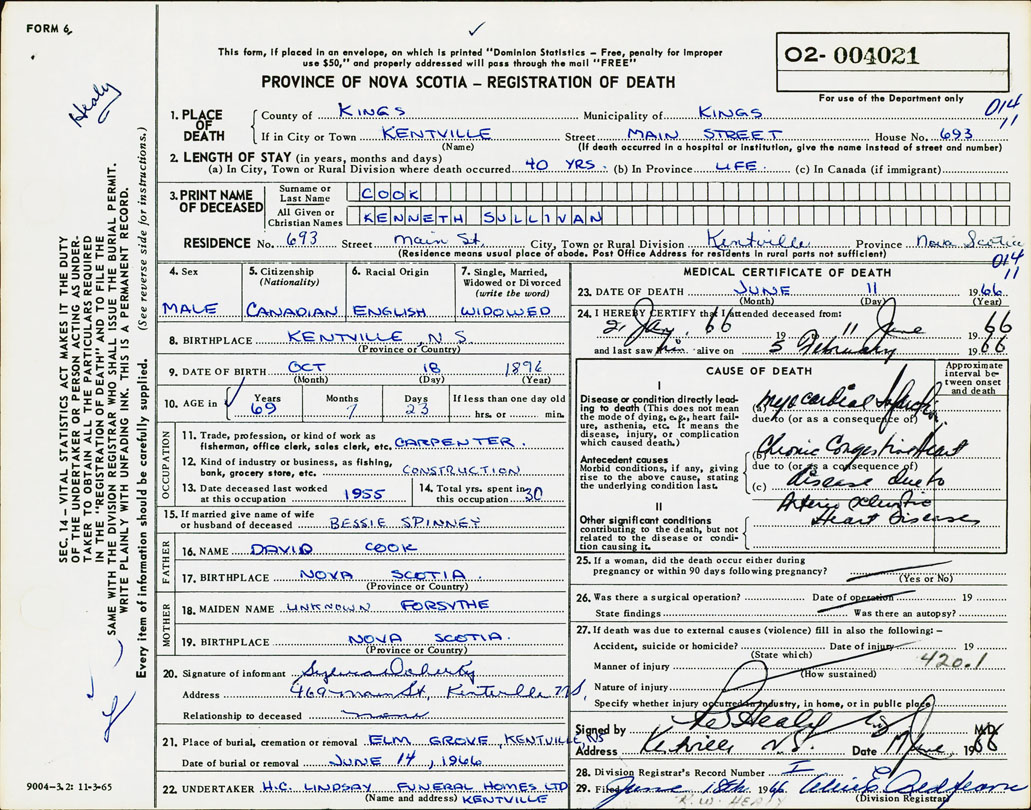 FORM 6
This form, if placed in an envelope, on which is printed "Dominion Statistics – Free, penalty for improper
use $50," and properly addressed will pass through the mail "FREE"
PROVINCE OF NOVA SCOTIA – REGISTRATION OF DEATH
02- 004021
For use of the Department only
014
11
Healy
1. PLACE OF DEATH
County of KINGS Municipality of KINGS
If in City or Town KENTVILLE Street MAIN STREET House No. 693
(Name) (If death occurred in a hospital or institution, give the name instead of street and number)
2. LENGTH OF STAY (in years, months and days)
(a) In City, Town or Rural Division where death occurred 40 YRS. (b) In Province LIFE (c) In Canada (if immigrant)
3. PRINT NAME OF DECEASED
Surname or Last Name COOK
All Given or Christian Names KENNETH SULLIVAN
RESIDENCE No. 693 Street Main St. City, Town or Rural Division Kentville Province Nova Scotia
(Residence means usual place of abode. Post Office Address for residents in rural parts not sufficient)
014
11
4. Sex
MALE
5. Citizenship (Nationality)
CANADIAN
6. Racial Origin
ENGLISH
7. Single, Married, Widowed or Divorced (write the word)
WIDOWED
8. BIRTHPLACE KENTVILLE, N S
(Province or Country)
9. DATE OF BIRTH OCT 18 1896
(Month) (Day) (Year)
10. AGE in Years Months Days If less than one day old
69 7 23 hrs. or min.
OCCUPATION
11. Trade, profession, or kind of work as
fisherman, office clerk, sales clerk, etc. CARPENTER.
12. Kind of industry or business, as fishing,
bank, grocery store, etc. CONSTRUCTION
13. Date deceased last worked at this occupation 1955
14. Total yrs. spent in this occupation 30
15. If married give name of wife
or husband of deceased BESSIE SPINNEY
FATHER
16. NAME DAVID COOK
17. BIRTHPLACE NOVA SCOTIA.
(Province or Country)
MOTHER
18. MAIDEN NAME UNKNOWN FORSYTHE
19. BIRTHPLACE NOVA SCOTIA.
(Province or Country)
20. Signature of informant
Address 469 Main St, Kentville NS,
Relationship to deceased none
21. Place of burial, cremation or removal ELM GROVE, KENTVILLE, NS
Date of burial or removal JUNE 14, 1966
22. UNDERTAKER H.C. LINDSAY FUNERAL HOMES LTD
(Name and address) KENTVILLE
MEDICAL CERTIFICATE OF DEATH
23. DATE OF DEATH JUNE 11 1966
(Month) (Day) (Year)
24. I HEREBY CERTIFY that I attended deceased from:
21 Jan. 66 19 to 11 June 1966
and last saw him alive on 5 February 1966
CAUSE OF DEATH
Approximate interval between onset and death
I
Disease or condition directly leading to death (This does not mean the mode of dying, e.g., heart failure, asthenia, etc. It means the disease, injury, or complication which caused death.)
(a) Myocardial Infarction
due to (or as a consequence of)
Antecedent causes
Morbid conditions, if any, giving rise to the above cause, stating the underlying condition last.
(b) Chronic Congestive Heart
due to (or as a consequence of)
(c) disease due to
Arterio sclerotic
Heart Disease
II
Other significant conditions
contributing to the death, but not related to the disease or condition causing it.
25. If a woman, did the death occur either during
pregnancy or within 90 days following pregnancy?
(Yes or No)
26. Was there a surgical operation? Date of operation 19
State findings Was there an autopsy?
27. If death was due to external causes (violence) fill in also the following: –
Accident, suicide or homicide? Date of injury 19
(State which)
420.1
Manner of injury
(How sustained)
Nature of injury
Specify whether injury occurred in industry, in home, or in public place
Signed by RW Healy M.D.
Address Kentville N.S. Date 17 June 1966
28. Division Registrar's Record Number
29. Filed June 18th 1966
(Division Registrar)
R. W. HEALY
SEC. 14 – VITAL STATISTICS ACT MAKES IT THE DUTY
OF THE UNDERTAKER OR PERSON ACTING AS UNDER-
TAKER TO OBTAIN ALL THE PARTICULARS REQUIRED
IN THE "REGISTRATION OF DEATH" AND TO FILE THE
SAME WITH THE DIVISION REGISTRAR WHO SHALL ISSUE THE BURIAL PERMIT.
WRITE PLAINLY WITH UNFADING INK. THIS IS A PERMANENT RECORD.
Every item of information should be carefully supplied. (See reverse side for instructions.)
9004-3.2: 11-3-65